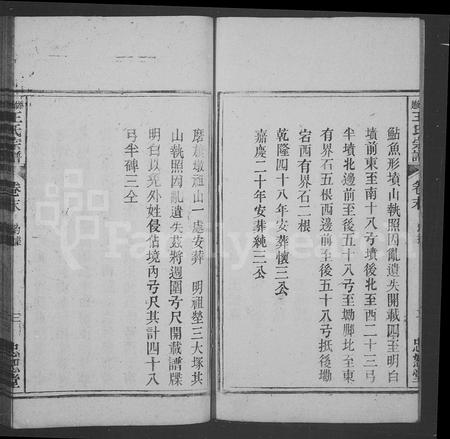 鮎魚形墳山執照因亂遺失開載四至明白
墳前東至南十八弓墳後北至西二十三弓
半墳北邊前至後五十八弓至塝腳北至東
有界石五根西邊前至後五十八弓抵後塝
宕西有界石二根
乾隆四十八年安葬懷三公
嘉慶二十年安葬純三公
王氏宗譜
卷末
三
忠恕堂
山一處安葬 明祖塋三大塚其
山執照因亂遺失茲將週圍弓尺開載譜牒
明白以免外姓侵佔境內弓尺共計四十八
弓半碑三仝
王氏宗譜
卷末
FamilySearch